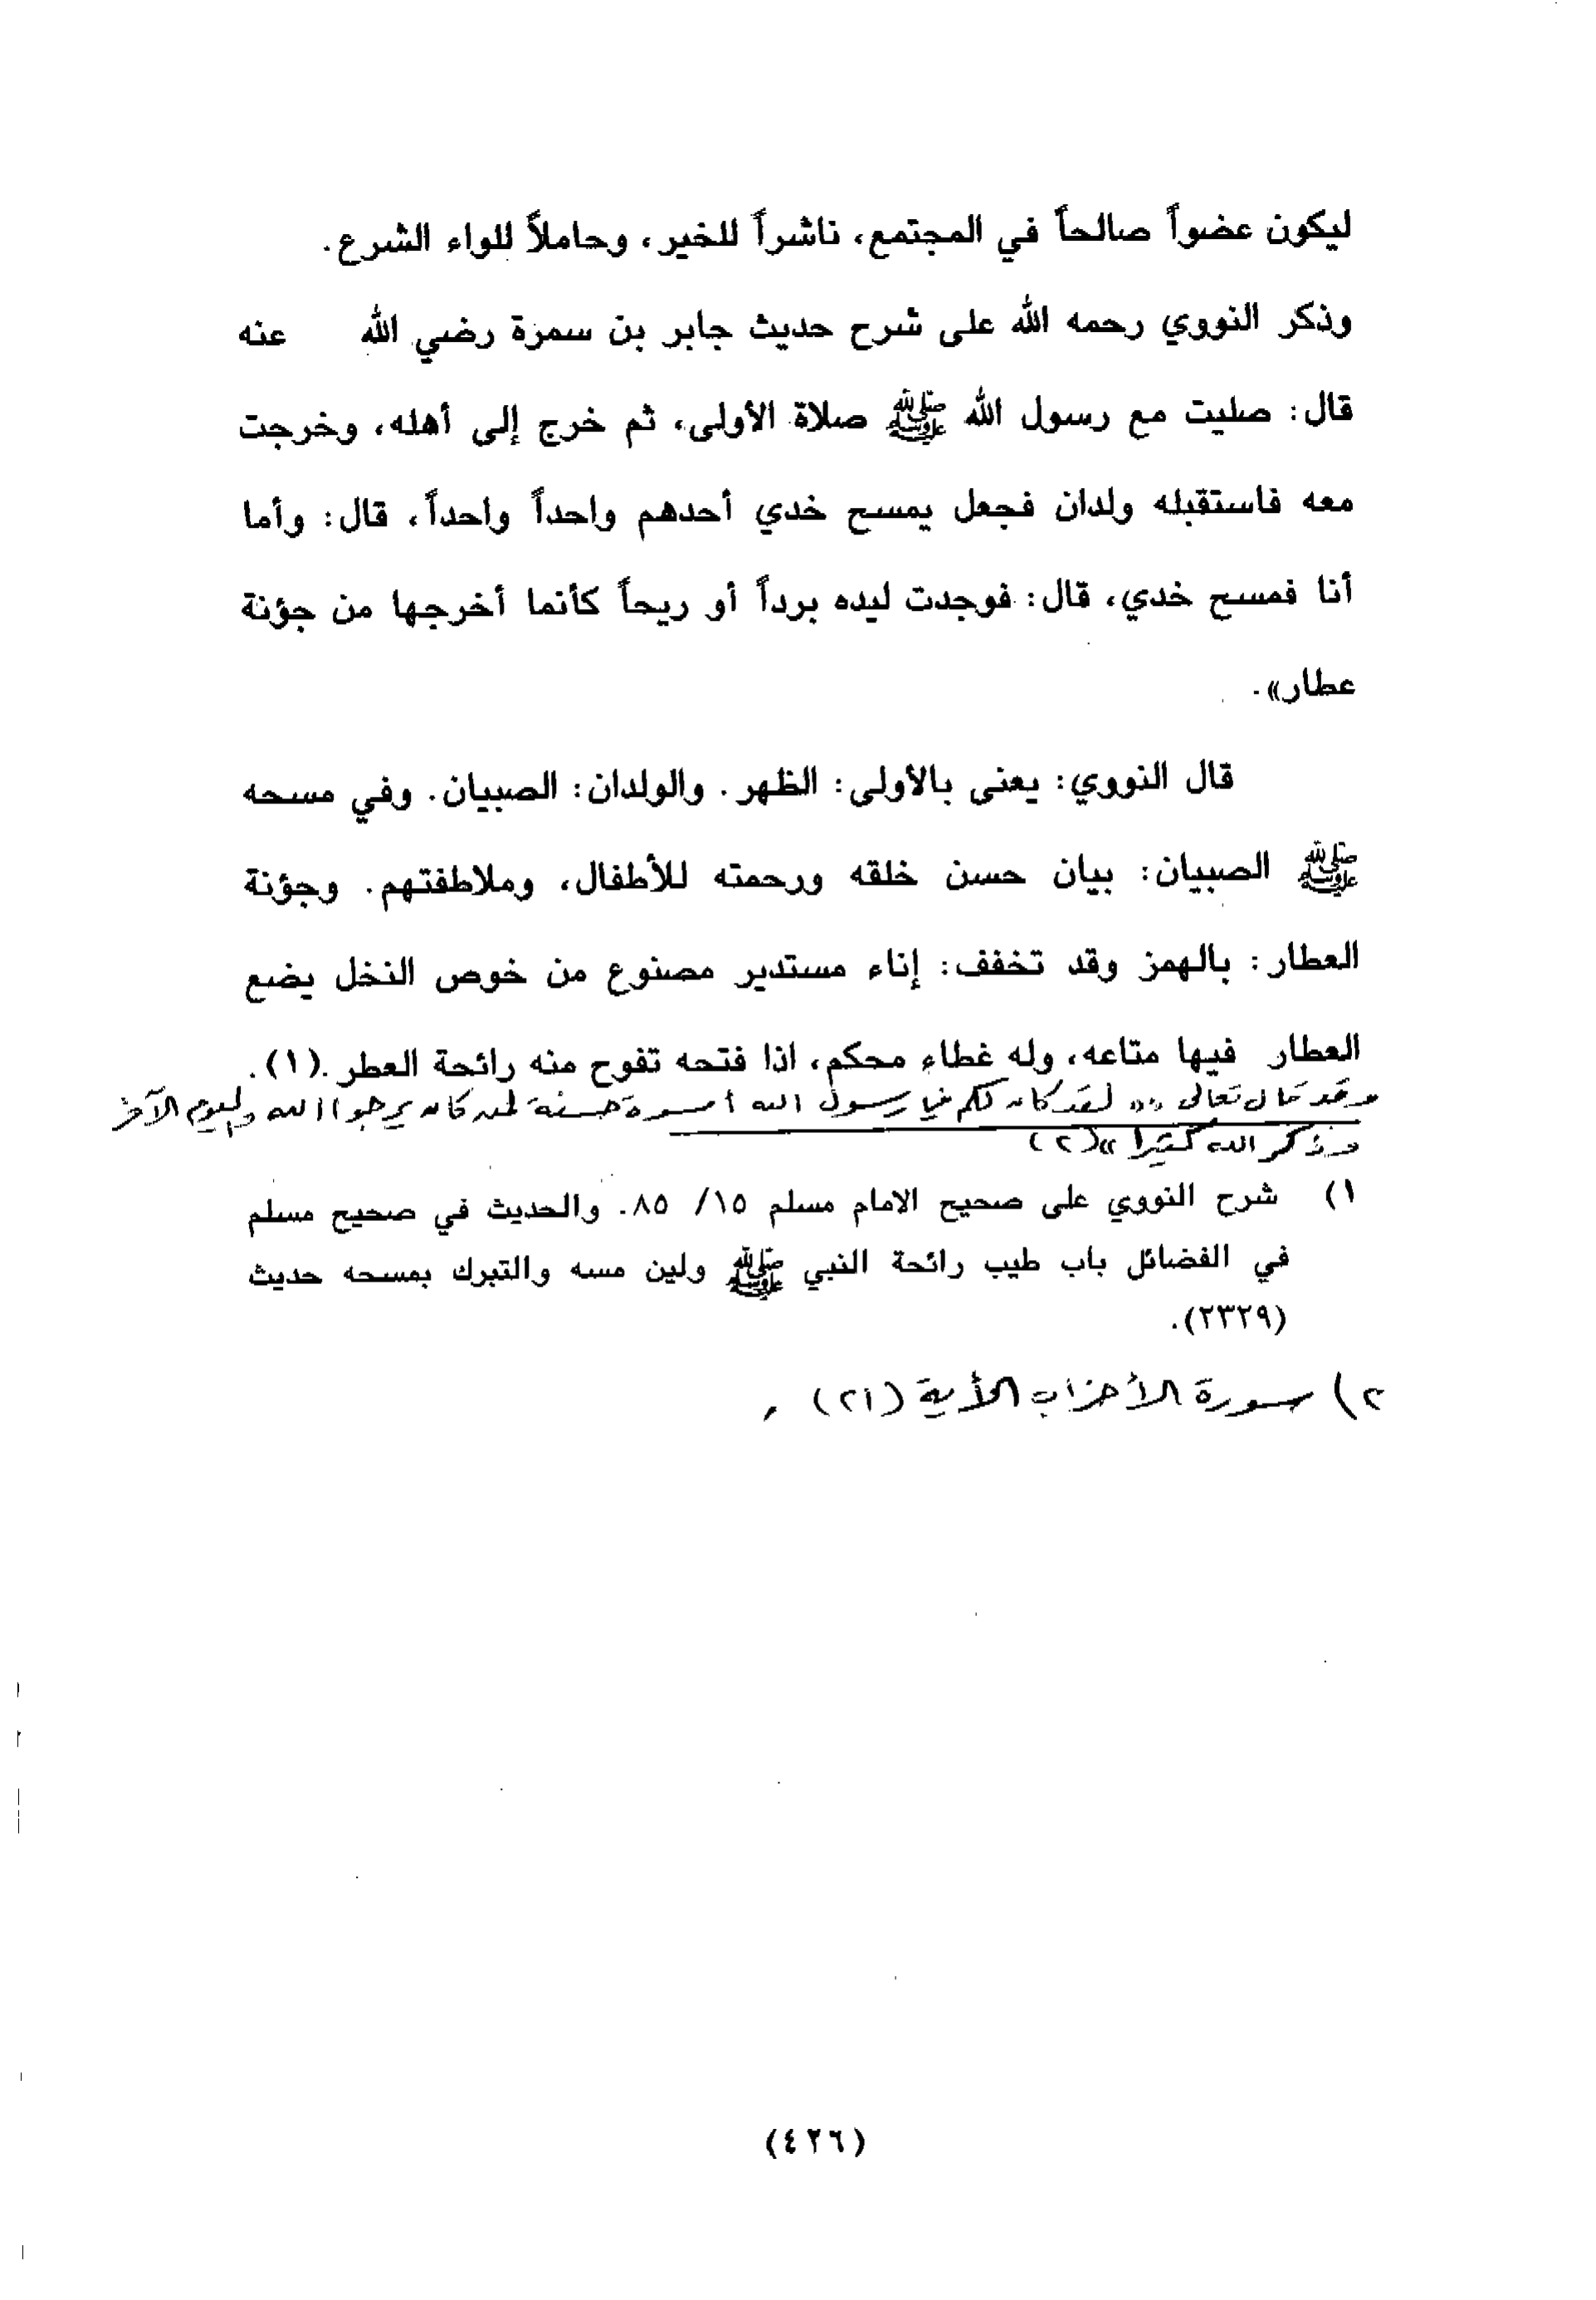 ليكون عضواً صالحاً في المجتمع، ناشراً للخير، وحاملاً للواء الشرع.
وذكر النووي رحمه الله على شرح حديث جابر بن سمرة رضي الله عنه
قال: صليت مع رسول الله ﷺ صلاة الأولى، ثم خرج إلى أهله، وخرجت
معه فاستقبله ولدان فجعل يمسح خدي أحدهم واحداً واحداً، قال: وأما
أنا فمسح خدي، قال: فوجدت ليده برداً أو ريحاً كأنما أخرجها من جؤنة
عطار».
قال النووي: يعنى بالأولى: الظهر. والولدان: الصبيان. وفي مسحه
ﷺ الصبيان: بيان حسن خلقه ورحمته للأطفال، وملاطفتهم. وجؤنة
العطار: بالهمز وقد تخفف: إناء مستدير مصنوع من خوص النخل يضع
العطار فيها متاعه، وله غطاء محكم، اذا فتحه تفوح منه رائحة العطر.(١).
وقد قال تعالى «لقد كان لكم في رسول الله أسوة حسنة لمن كان يرجوا الله واليوم الآخر
وذكر الله كثيرا»(٢)
١) شرح النووي على صحيح الامام مسلم ١٥/ ٨٥. والحديث في صحيح مسلم
في الفضائل باب طيب رائحة النبي ﷺ ولين مسه والتبرك بمسحه حديث
(٢٣٢٩).
٢) سورة الأحزاب الأية (٢١).
(٤٢٦)